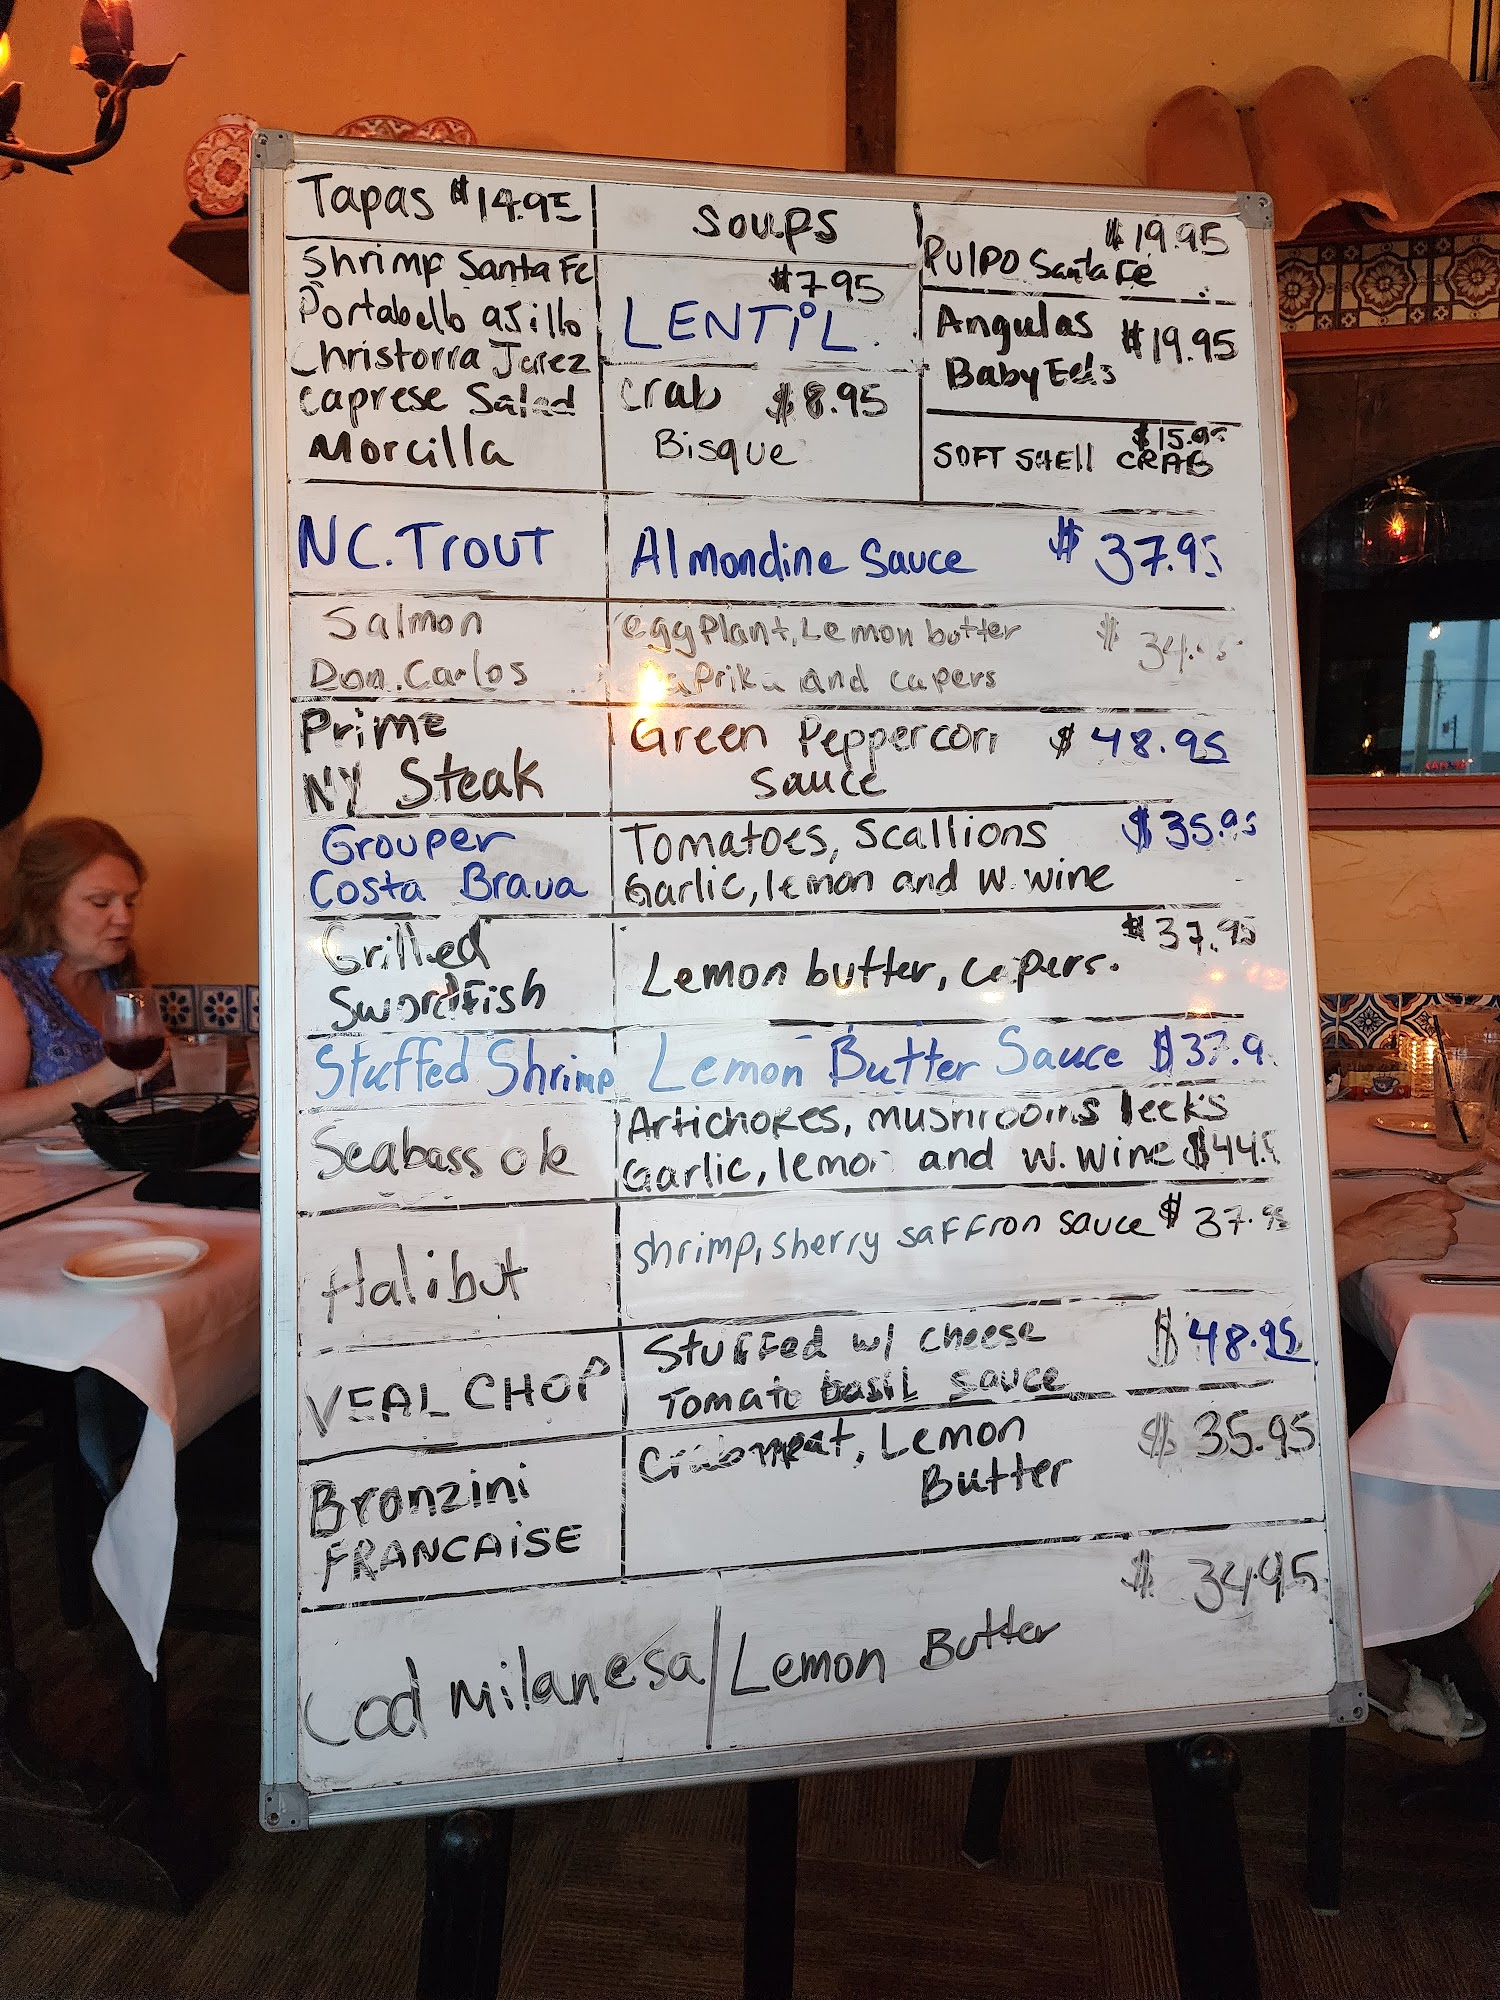 Tapas $14.95
Shrimp Santa Fe
Portabello aJillo
Christorra Jerez
Caprese Salad
Morcilla
Soups
$7.95
LENTiL
Crab $8.95
Bisque
$19.95
PULPO Santa Fe
Angulas $19.95
Baby Eels
$15.95
SOFT SHELL CRAB
NC. Trout Almondine Sauce $37.95
Salmon
Don.Carlos
eggplant, Lemon butter $34.95
paprika and capers
Prime
NY Steak
Green Peppercorn $48.95
Sauce
Grouper
Costa Brava
Tomatoes, Scallions $35.95
Garlic, lemon and W. wine
Grilled
Swordfish
$37.95
Lemon butter, capers.
Stuffed Shrimp Lemon Butter Sauce $37.9
Seabass ole
Artichokes, mushrooms leeks
Garlic, lemon and W. wine $44.
Halibut
shrimp, sherry saffron sauce $37.95
VEAL CHOP
Stuffed w/ cheese $48.95
Tomato basil sauce
Bronzini
FRANCAISE
Crabmeat, Lemon $35.95
Butter
$34.95
Cod milanesa/Lemon Butter